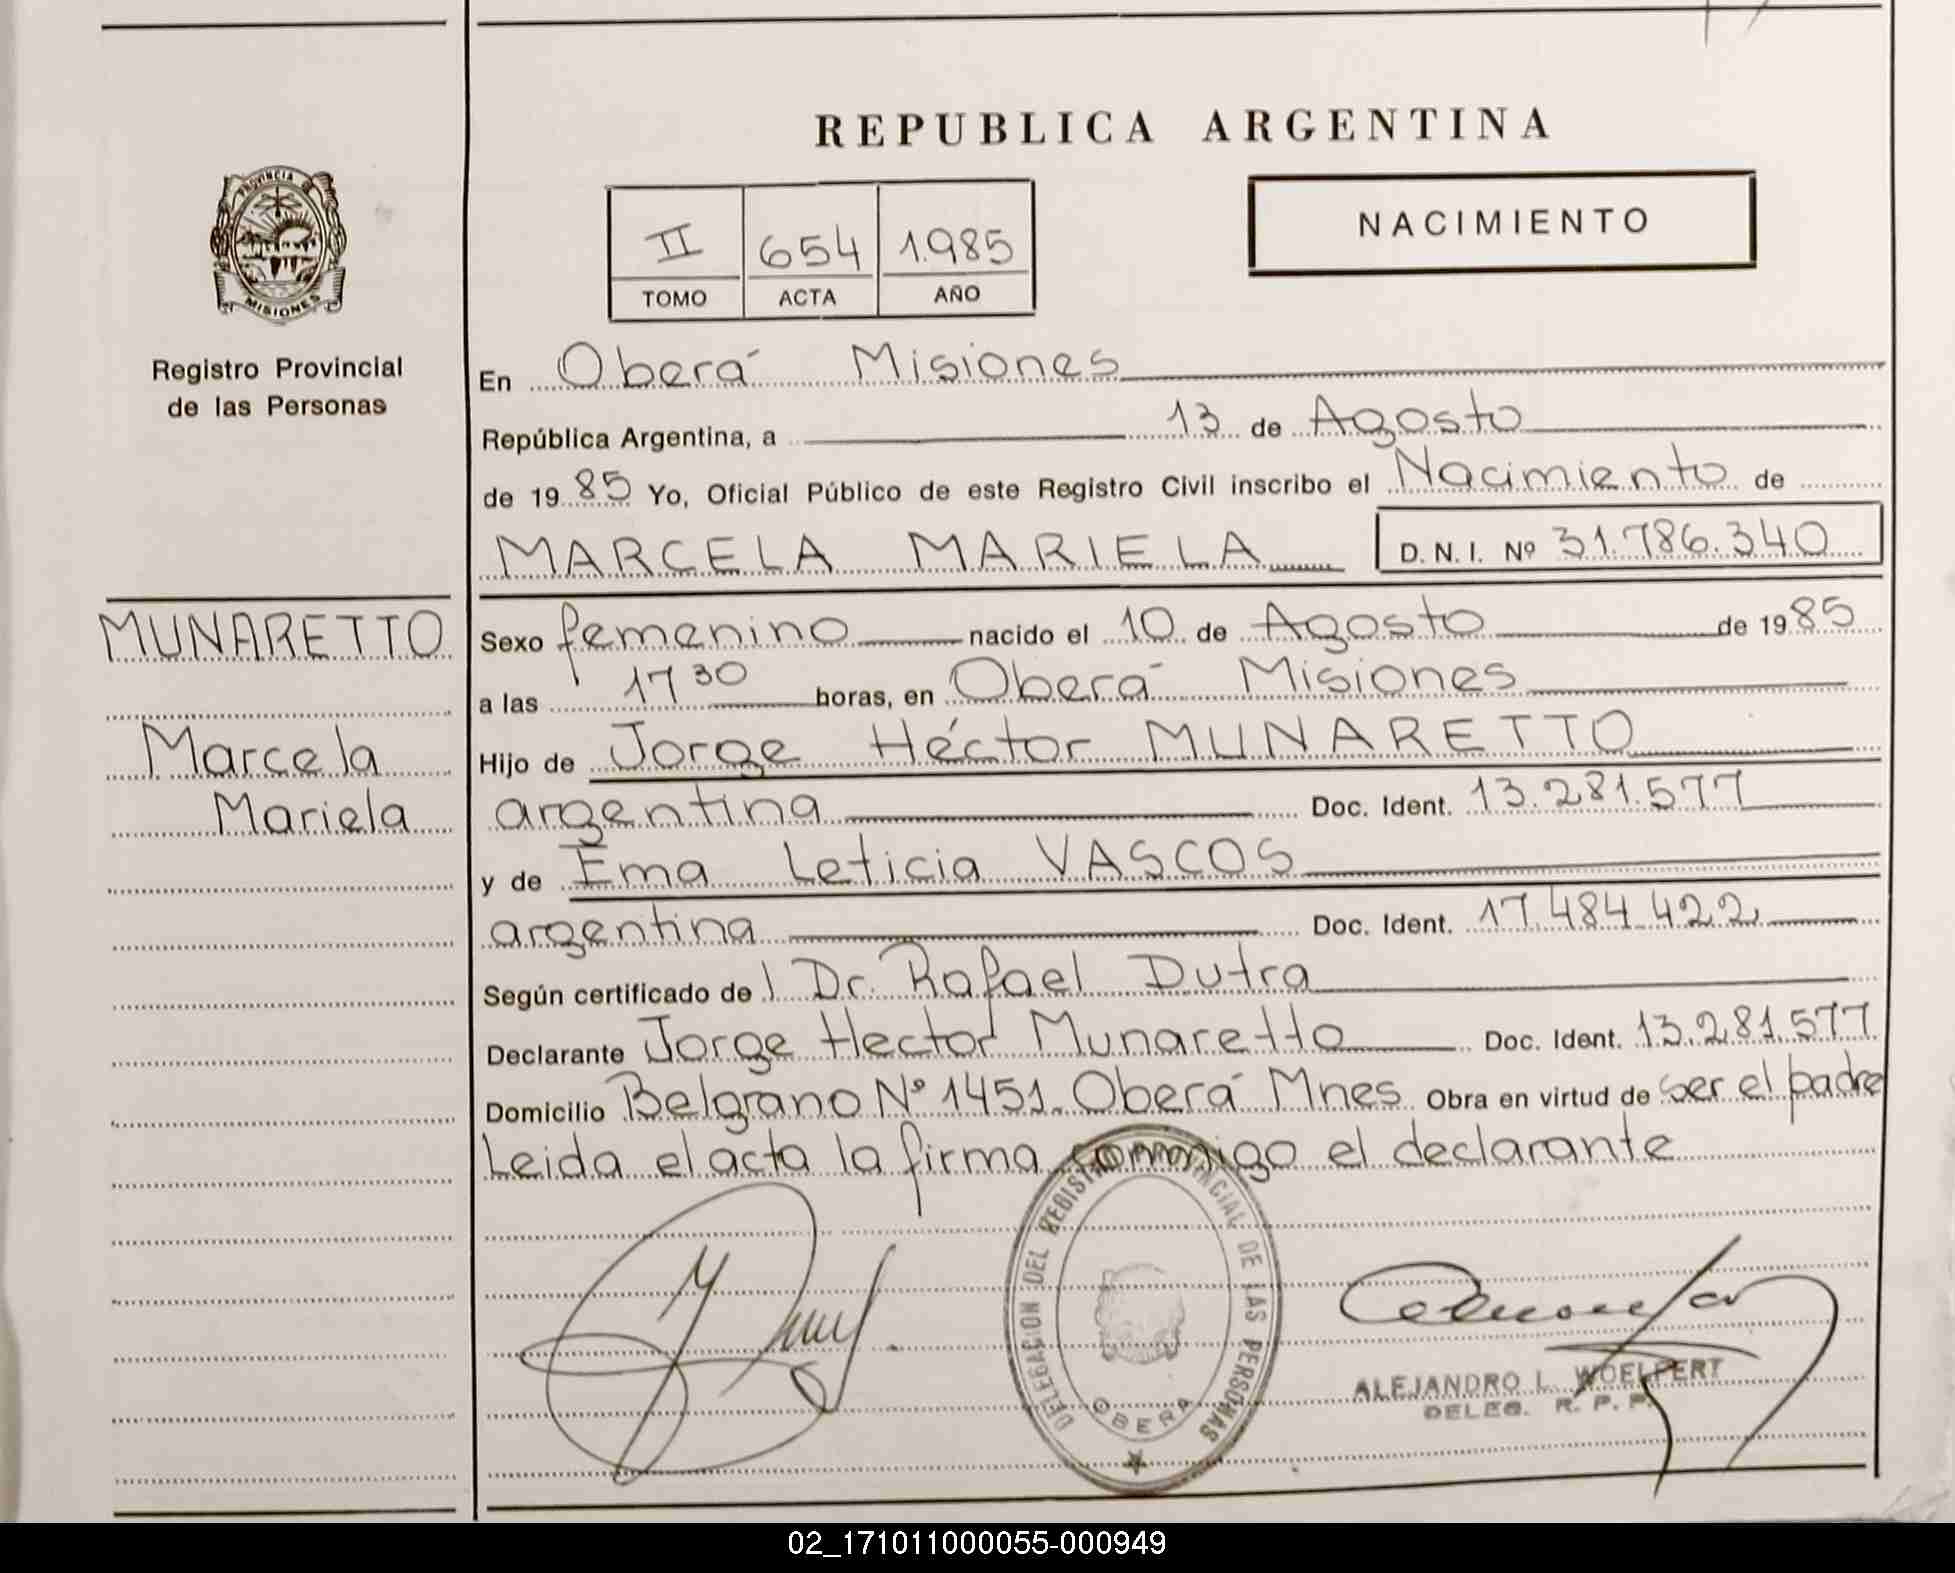 REPUBLICA ARGENTINA
PROVINCIA DE
MISIONES
II 654 1.985
TOMO ACTA AÑO
NACIMIENTO
Registro Provincial
de las Personas
MUNARETTO
Marcela
Mariela
En Oberá Misiones
República Argentina, a 13 de Agosto
de 1985 Yo, Oficial Público de este Registro Civil inscribo el Nacimiento de
MARCELA MARIELA D.N.I. Nº 31.786.340
Sexo femenino nacido el 10 de Agosto de 1985
a las 17 30 horas, en Oberá Misiones
Hijo de Jorge Héctor MUNARETTO
argentina Doc. Ident. 13.281.577
y de Ema Leticia VASCOS
argentina Doc. Ident. 17.484.422
Según certificado de Dr. Rafael Dutra
Declarante Jorge Hector Munaretto Doc. Ident. 13.281.577
Domicilio Belgrano Nº 1451. Oberá Mnes Obra en virtud de ser el padre
Leida el acta la firma conmigo el declarante
DELEGACION DEL REGISTRO PROVINCIAL DE LAS PERSONAS
OBERA
ALEJANDRO L. WOELPERT
DELEG. R. P. P.
02_171011000055-000949